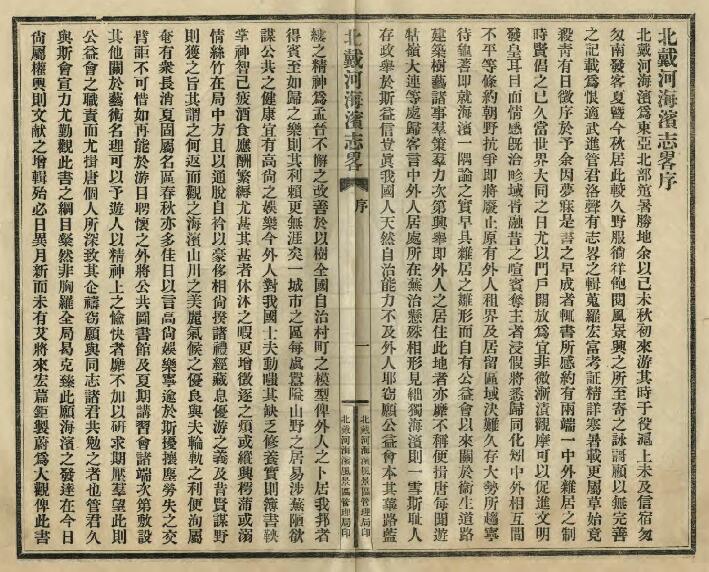 北戴河海濱志畧序
北戴河海濱爲東亞北部避暑勝地余以己未秋初來游其時于役滬上未及信宿匆
匆南發客夏暨今秋居此較久野服徜徉飽閱風景興之所至寄之詠謌顧以無完善
之記載爲恨適武進管君洛聲有志畧之輯蒐羅宏富考証精詳寒暑載更屬草始竟
殺靑有日徵序於予余因夢寐是書之早成者輒書所感約有兩端一中外雜居之制
時賢倡之已久當世界大同之日尤以門戶開放爲宜非微漸漬觀摩可以促進文明
發皇耳目而情感旣洽畛域胥融昔之喧賓奪主者浸假將悉歸同化矧中外相互間
不平等條約朝野抗爭即將廢止原有外人租界及居留區域決難久存大勢所趨寧
待龜蓍即就海濱一隅論之實早具雜居之雛形而自有公益會以來關於衞生道路
建築樹藝諸事羣策羣力次第興舉即外人之居住此地者亦靡不稱便惜唐每聞遊
牯嶺大連等處歸客言中外人居處所在蕪治懸殊相形見絀獨海濱則一雪斯耻人
存政舉於斯益信豈眞我國人天然自治能力不及外人耶竊願公益會本其篳路藍
縷之精神爲孟晉不懈之改善於以樹全國自治村町之模型俾外人之卜居我邦者
得賓至如歸之樂則其利賴更無涯矣一城市之區每虞囂隘山野之居易涉蕪陋欲
謀公共之健康宜有高尙之娛樂今外人對我國士夫動嗤其缺乏修養實則簿書鞅
掌神智已疲酒食應酬繁縟尤甚其甚者休沐之暇更增徵逐之煩或縱興樗蒲或溺
情絲竹在局中方且以通脫自矜以豪侈相尙揆諸禮經藏息優游之義及昔賢謀野
則獲之旨其謂之何返而觀之海濱山川之美麗氣候之優良與夫輪軌之利便洵屬
奄有衆長消夏固屬名區春秋亦多佳日以言高尙娛樂寧逾於斯擾攘塵勞失之交
臂詎不可惜如再能於游目騁懷之外將公共圖書館及夏期講習會諸端次第敷設
其他關於藝術名理可以予遊人以精神上之愉快者靡不加以研求期壓羣望此則
公益會之職責而尤揩唐個人所深致其企禱竊願與同志諸君共勉之者也管君久
與斯會宣力尤勤觀此書之綱目粲然非胸羅全局曷克臻此願海濱之發達在今日
尙屬權輿則文獻之增輯殆必日異月新而未有艾將來宏篇鉅製蔚爲大觀俾此書
北戴河海濱志畧
序
一
北戴河海濱風景區管理局印
北戴河海濱風景區管理局印